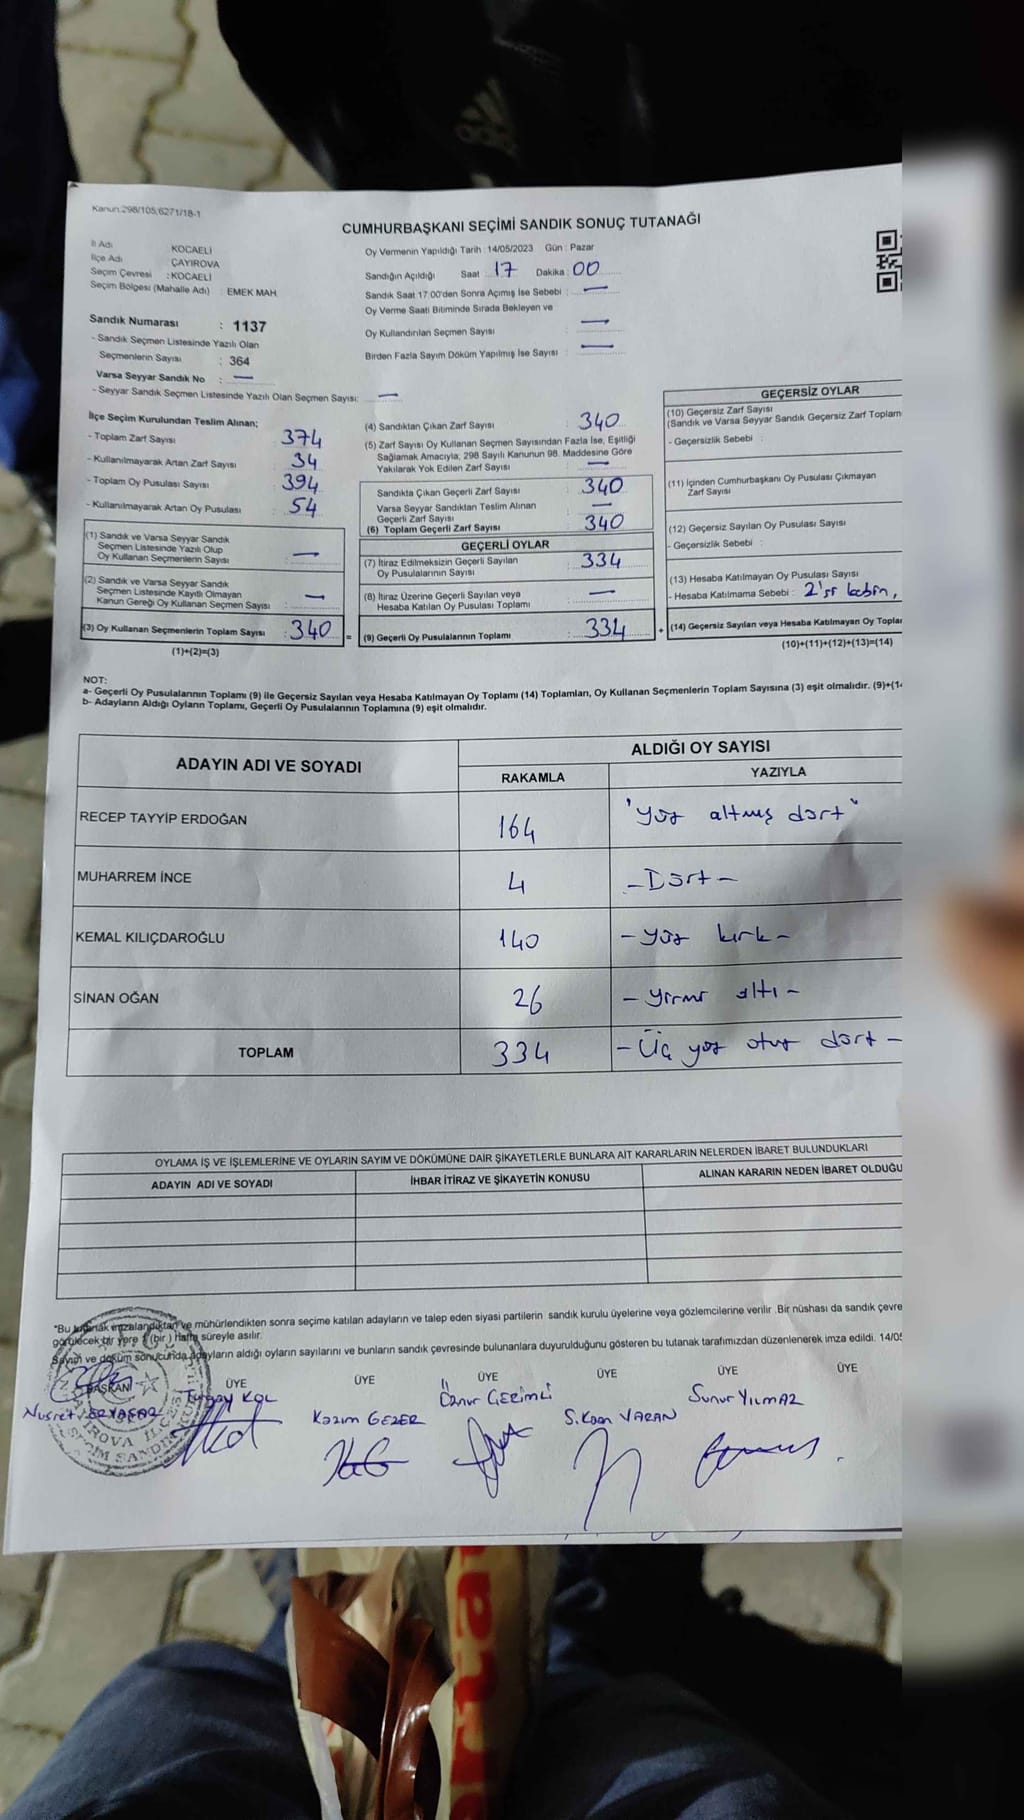 Kanun:298/105;6271/18-1
CUMHURBAŞKANI SEÇİMİ SANDIK SONUÇ TUTANAĞI
İl Adı KOCAELİ
İlçe Adı ÇAYIROVA
Seçim Çevresi : KOCAELİ
Seçim Bölgesi (Mahalle Adı) : EMEK MAH.
Sandık Numarası : 1137
- Sandık Seçmen Listesinde Yazılı Olan
Seçmenlerin Sayısı : 364
Varsa Seyyar Sandık No : —
- Seyyar Sandık Seçmen Listesinde Yazılı Olan Seçmen Sayısı: —
Oy Vermenin Yapıldığı Tarih :14/05/2023 Gün : Pazar
Sandığın Açıldığı Saat : 17 Dakika : 00
Sandık Saat 17:00'den Sonra Açımış İse Sebebi : —
Oy Verme Saati Bitiminde Sırada Bekleyen ve
Oy Kullandırılan Seçmen Sayısı : —
Birden Fazla Sayım Döküm Yapılmış İse Sayısı : —
İlçe Seçim Kurulundan Teslim Alınan;
- Toplam Zarf Sayısı : 374
- Kullanılmayarak Artan Zarf Sayısı : 34
- Toplam Oy Pusulası Sayısı : 394
- Kullanılmayarak Artan Oy Pusulası : 54
(1) Sandık ve Varsa Seyyar Sandık
Seçmen Listesinde Yazılı Olup
Oy Kullanan Seçmenlerin Sayısı : —
(2) Sandık ve Varsa Seyyar Sandık
Seçmen Listesinde Kayıtlı Olmayan
Kanun Gereği Oy Kullanan Seçmen Sayısı : —
(3) Oy Kullanan Seçmenlerin Toplam Sayısı : 340 =
(1)+(2)=(3)
(4) Sandıktan Çıkan Zarf Sayısı : 340
(5) Zarf Sayısı Oy Kullanan Seçmen Sayısından Fazla İse, Eşitliği
Sağlamak Amacıyla, 298 Sayılı Kanunun 98. Maddesine Göre
Yakılarak Yok Edilen Zarf Sayısı : —
Sandıkta Çıkan Geçerli Zarf Sayısı : 340
Varsa Seyyar Sandıktan Teslim Alınan
Geçerli Zarf Sayısı : —
(6) Toplam Geçerli Zarf Sayısı : 340
GEÇERLİ OYLAR
(7) İtiraz Edilmeksizin Geçerli Sayılan
Oy Pusulalarının Sayısı : 334
(8) İtiraz Üzerine Geçerli Sayılan veya
Hesaba Katılan Oy Pusulaları Toplamı : —
(9) Geçerli Oy Pusulalarının Toplamı : 334 +
GEÇERSİZ OYLAR
(10) Geçersiz Zarf Sayısı
(Sandık ve Varsa Seyyar Sandık Geçersiz Zarf Toplam
- Geçersizlik Sebebi :
(11) İçinden Cumhurbaşkanı Oy Pusulası Çıkmayan
Zarf Sayısı
(12) Geçersiz Sayılan Oy Pusulası Sayısı
- Geçersizlik Sebebi :
(13) Hesaba Katılmayan Oy Pusulası Sayısı
- Hesaba Katılmama Sebebi : 2'si
(14) Geçersiz Sayılan veya Hesaba Katılmayan Oy Topla
(10)+(11)+(12)+(13)=(14)
NOT:
a- Geçerli Oy Pusulalarının Toplamı (9) ile Geçersiz Sayılan veya Hesaba Katılmayan Oy Toplamı (14) Toplamları, Oy Kullanan Seçmenlerin Toplam Sayısına (3) eşit olmalıdır. (9)+(1
b- Adayların Aldığı Oyların Toplamı, Geçerli Oy Pusulalarının Toplamına (9) eşit olmalıdır.
ADAYIN ADI VE SOYADI
ALDIĞI OY SAYISI
RAKAMLA YAZIYLA
RECEP TAYYİP ERDOĞAN 164 "Yüz altmış dört"
MUHARREM İNCE 4 - Dört -
KEMAL KILIÇDAROĞLU 140 - Yüz kırk -
SİNAN OĞAN 26 - Yirmi altı -
TOPLAM 334 - Üç yüz otuz dört -
OYLAMA İŞ VE İŞLEMLERİNE VE OYLARIN SAYIM VE DÖKÜMÜNE DAİR ŞİKAYETLERLE BUNLARA AİT KARARLARIN NELERDEN İBARET BULUNDUKLARI
ADAYIN ADI VE SOYADI İHBAR İTİRAZ VE ŞİKAYETİN KONUSU ALINAN KARARIN NEDEN İBARET OLDUĞU
"Bu tutanak imzalandıktan ve mühürlendikten sonra seçime katılan adayların ve talep eden siyasi partilerin sandık kurulu üyelerine veya gözlemcilerine verilir .Bir nüshası da sandık çevre
görülecek bir yere 1 (bir ) hafta süreyle asılır.
Sayım ve döküm sonucunda adayların aldığı oyların sayılarını ve bunların sandık çevresinde bulunanlara duyurulduğunu gösteren bu tutanak tarafımızdan düzenlenerek imza edildi. 14/05
BAŞKAN ÜYE ÜYE ÜYE ÜYE ÜYE ÜYE
Nusret Kazım GEZER Öznur GERİMLİ S.Kaan VARAN Sunur YILMAZ